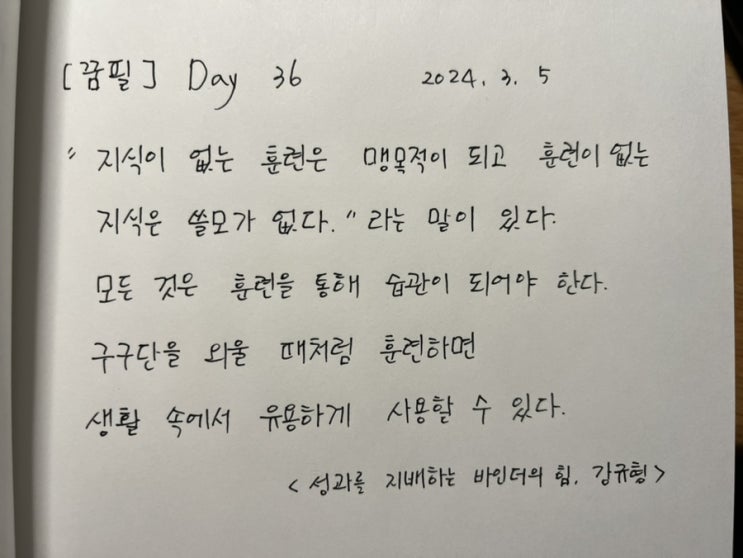 [꿈필] Day 36 2024. 3. 5
"지식이 없는 훈련은 맹목적이 되고 훈련이 없는
지식은 쓸모가 없다." 라는 말이 있다.
모든 것은 훈련을 통해 습관이 되어야 한다.
구구단을 외울 때처럼 훈련하면
생활 속에서 유용하게 사용할 수 있다.
<성과를 지배하는 바인더의 힘, 강규형>